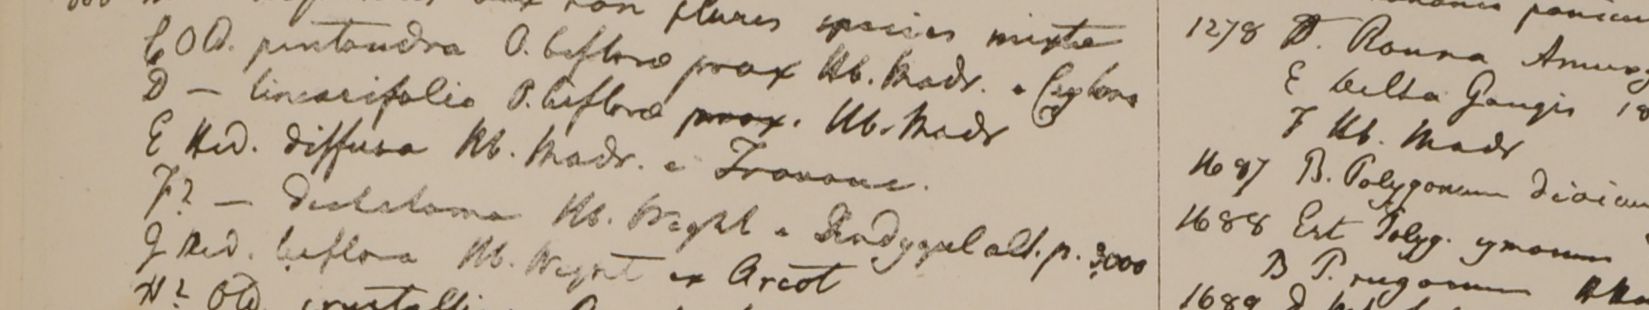 non plures species mixtae
C Old. pentandra O. biflorae prox Hb. Madr. e Ceylona
D — linearifolia O. biflorae prox. Hb. Madr
E Hed. diffusa Hb. Madr. e Travanc.
F? — dichotoma Hb. Wight e Dindygul alt. p. 3000
G Hed. biflora Hb. Wight ex Arcot
H? Old.
1278 D. Rouna
E Delta Gangis
F Hb. Madr
1687 B. Polygonum
1688 Ext Polyg. cymosum
B P. rugosum
1689